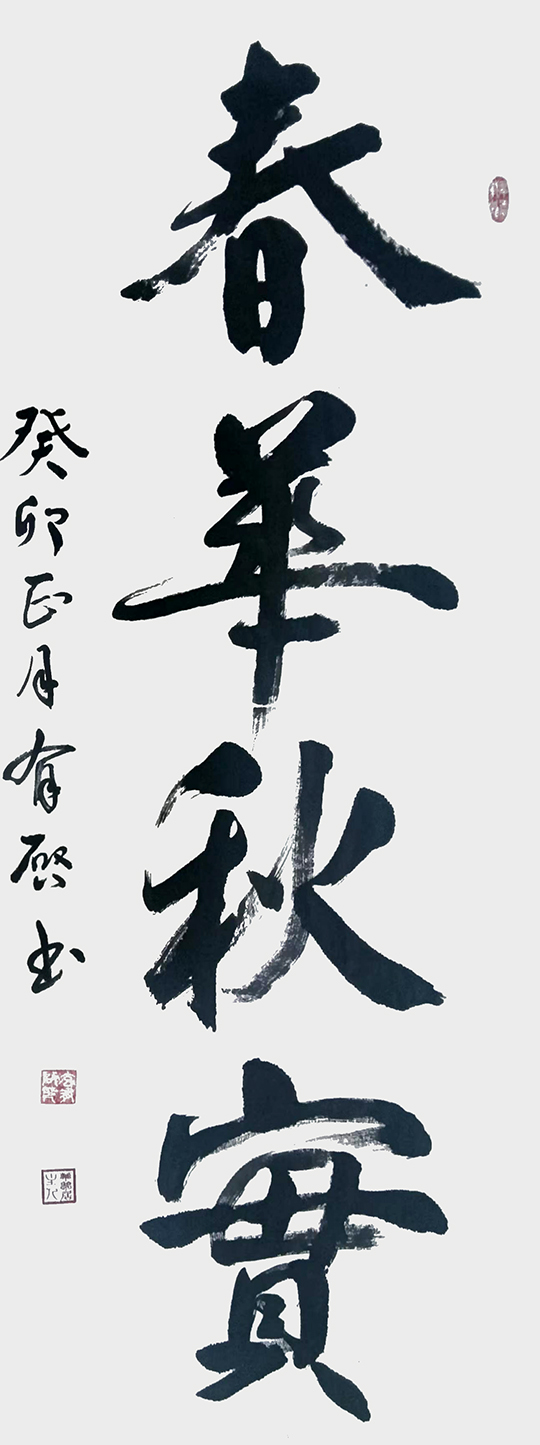 春華秋實
癸卯正月有啓书